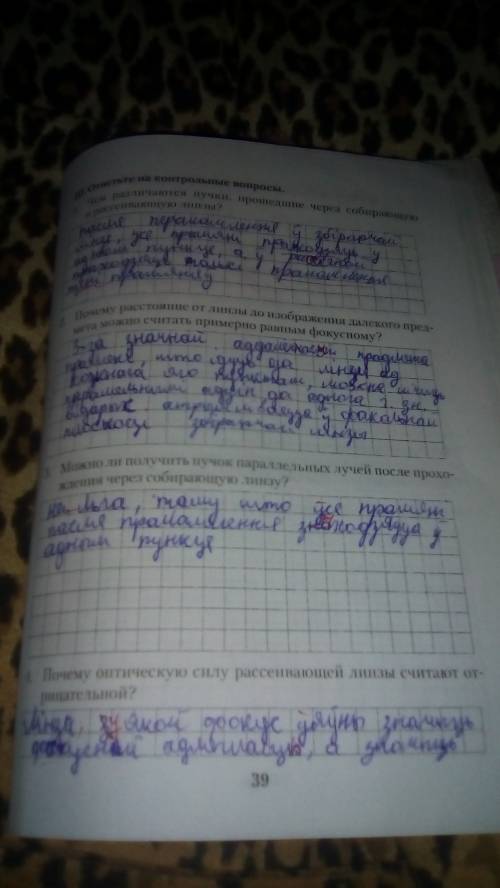 10. Ответьте на контрольные вопросы.
1. Чем различаются пучки, прошедшие через собирающую
и рассеивающую линзы?
пасля праламлення ў збіраючай
лінзе, усе прамяні праходзяць у
адным пункце, а у рассеяной
праходзяць толькі праламлення
прамяняў
2. Почему расстояние от линзы до изображения далекого пред-
мета можно считать примерно равным фокусному?
З-за значнай аддаленасці прадмета
прамяні, што ідуць да лінзы ад
кожнага яго пункта, можна лічыць
паралельнымі адзін да аднаго і зн.
відарыс атрымліваецца ў факальнай
плоскасці збіраючай лінзы
3. Можно ли получить пучок параллельных лучей после прохо-
ждения через собирающую линзу?
нельга, таму што ўсе прамяні
пасля праламлення знаходзяцца у
адным пункце
4. Почему оптическую силу рассеивающей линзы считают от-
рицательной?
Лінза, у якой фокус ўяўны значыць
фокусная адмоўная, а значыць
39